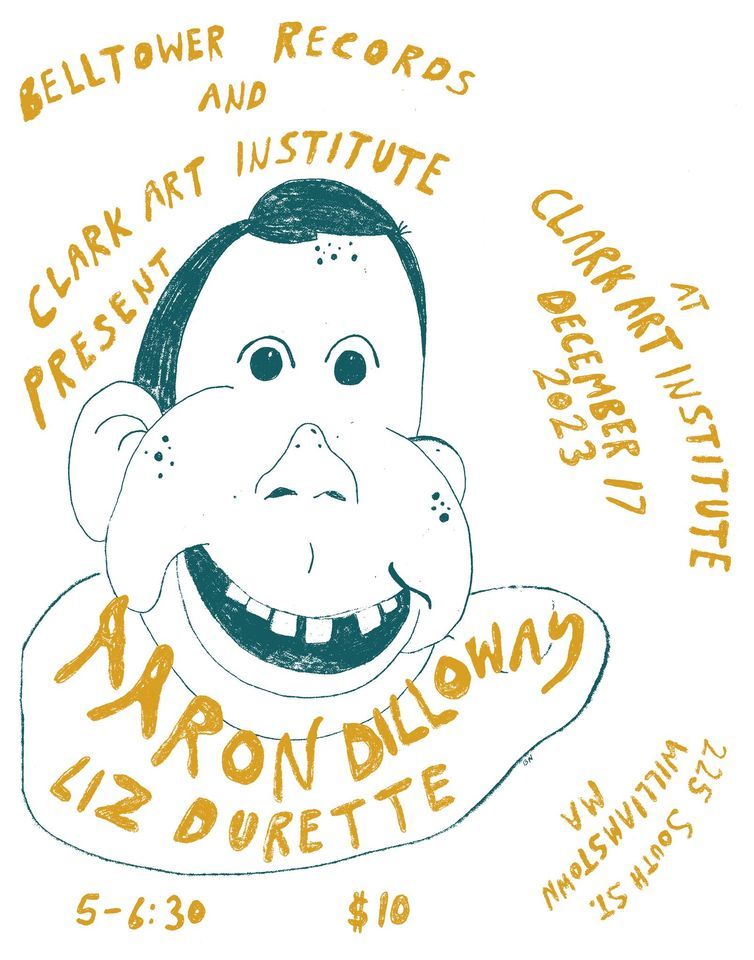 BELLTOWER RECORDS
AND
CLARK ART INSTITUTE
PRESENT
AT
CLARK ART INSTITUTE
DECEMBER 17
2023
AARON DILLOWAY
LIZ DURETTE
225 SOUTH ST.
WILLIAMSTOWN
MA
5-6:30
$10